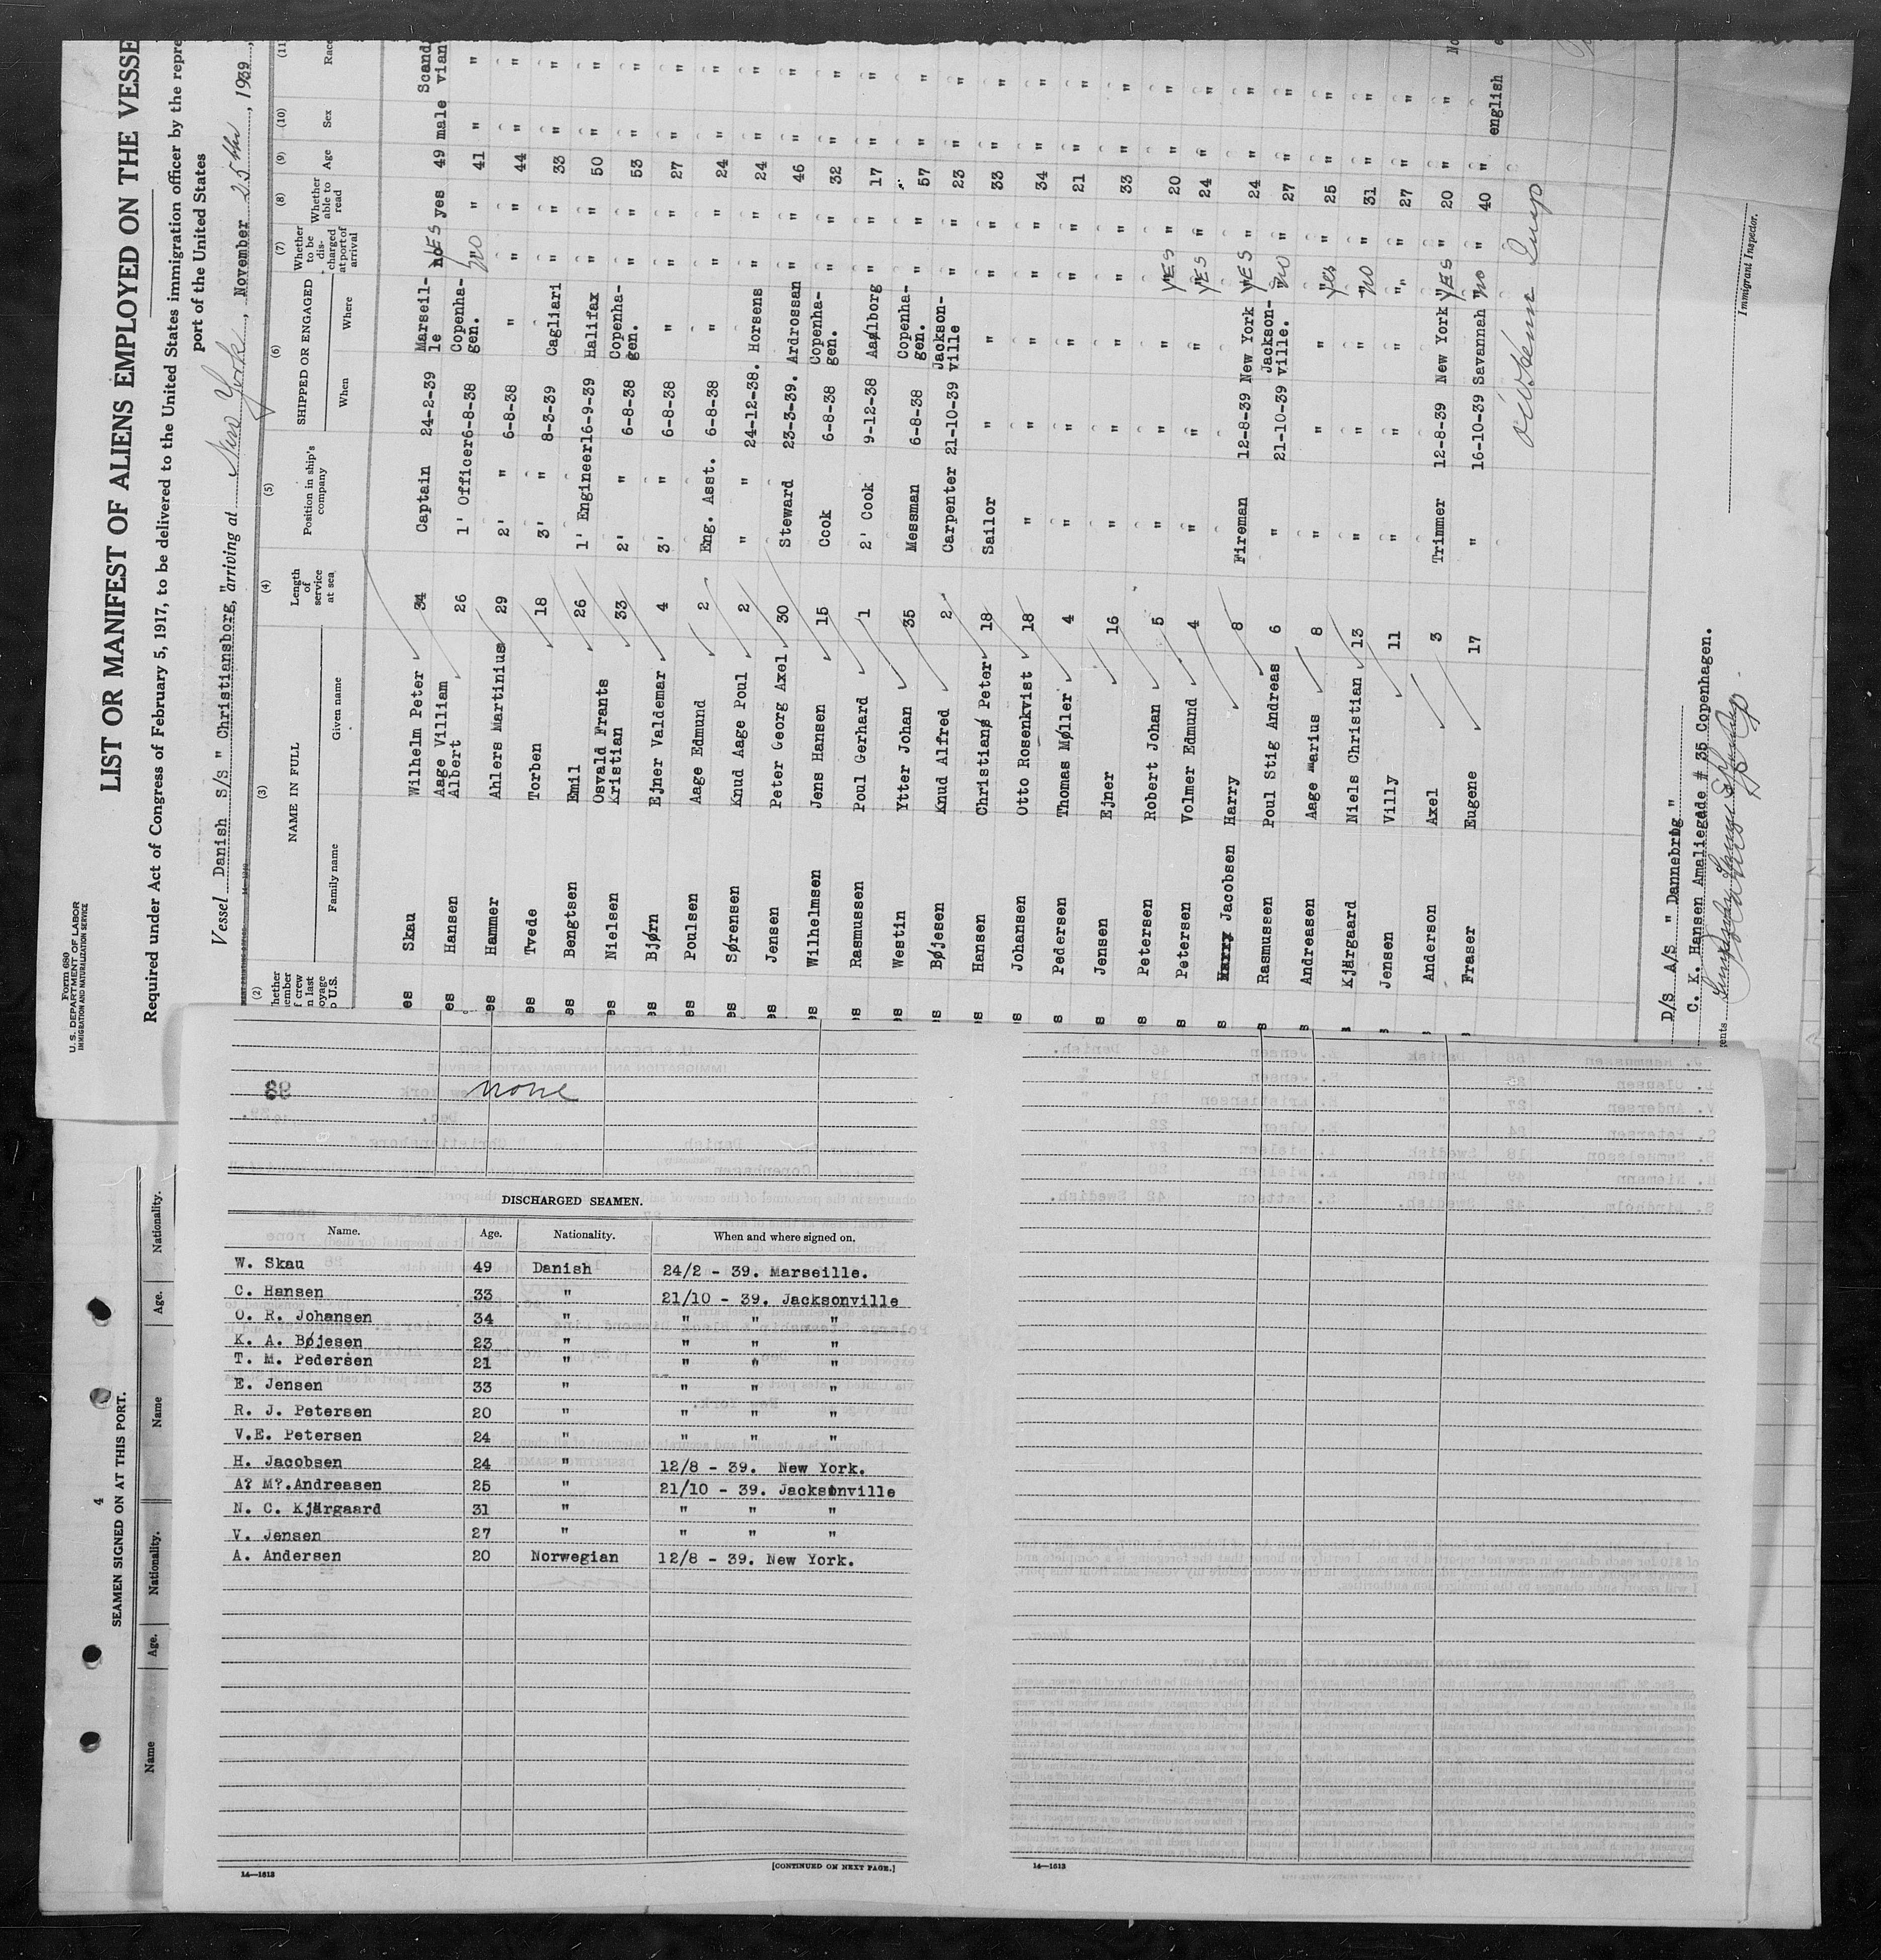 Form 680
U. S. DEPARTMENT OF LABOR
IMMIGRATION AND NATURALIZATION SERVICE
LIST OR MANIFEST OF ALIENS EMPLOYED ON THE VESSE
Required under Act of Congress of February 5, 1917, to be delivered to the United States immigration officer by the repre
port of the United States
Vessel Danish S/s " Christiansborg," arriving at New York, November 25th, 1939,
(2) (3) (4) (5) (6) (7) (8) (9) (10) (11
hether ember f crew n last oyage U.S. NAME IN FULL Length of service at sea Position in ship's company SHIPPED OR ENGAGED Whether to be discharged at port of arrival Whether able to read Age Sex Race
Family name Given name When Where
es Skau Wilhelm Peter 34 Captain 24-2-39 Marseil-le YES yes 49 male Scand vian
es Hansen Aage Villiam Albert 26 1' Officer 6-8-38 Copenha-gen. no " 41 " "
es Hammer Ahlers Martinius 29 2' " 6-8-38 " " " 44 " "
es Tvede Torben 18 3' " 8-3-39 Cagliari " " 33 " "
es Bengtsen Emil 26 1' Engineer 16-9-39 Halifax " " 50 " "
es Nielsen Osvald Frants Kristian 33 2' " 6-8-38 Copenha-gen. " " 53 " "
es Bjørn Ejner Valdemar 4 3' " 6-8-38 " " " 27 " "
es Poulsen Aage Edmund 2 Eng. Asst. 6-8-38 " " " 24 " "
es Sørensen Knud Aage Poul 2 " " 24-12-38. Horsens " " 24 " "
es Jensen Peter Georg Axel 30 Steward 23-3-39. Ardrossan " " 46 " "
es Wilhelmsen Jens Hansen 15 Cook 6-8-38 Copenha-gen. " " 32 " "
es Rasmussen Poul Gerhard 1 2' Cook 9-12-38 Aalborg " " 17 " "
es Westin Ytter Johan 35 Messman 6-8-38 Copenha-gen. " " 57 " "
es Bøjesen Knud Alfred 2 Carpenter 21-10-39 Jackson-ville " " 23 " "
s Hansen Christian Peter 18 Sailor " " " " 33 " "
s Johansen Otto Rosenkvist 18 " " " " " 34 " "
s Pedersen Thomas Møller 4 " " " " " 21 " "
s Jensen Ejner 16 " " " " " 33 " "
s Petersen Robert Johan 5 " " " YES " 20 " "
s Petersen Volmer Edmund 4 " " " YES " 24 " "
s Harry Jacobsen Harry 8 Fireman 12-8-39 New York YES " 24 " "
s Rasmussen Poul Stig Andreas 6 " 21-10-39 Jackson-ville. no " 27 " "
s Andreasen Aage Marius 8 " " " Yes " 25 " "
s Kjärgaard Niels Christian 13 " " " no " 31 " "
s Jensen Villy 11 " " " " " 27 " "
s Anderson Axel 3 Trimmer 12-8-39 New York YES " 20 " "
s Fraser Eugene 17 " 16-10-39 Savannah no " 40 " english
D/s A/s " Dannebrog "
C. K. Hansen Amaliegade # 35 Copenhagen.
Immigrant Inspector.
none
DISCHARGED SEAMEN.
Name. Age. Nationality. When and where signed on.
W. Skau 49 Danish 24/2 - 39. Marseille.
C. Hansen 33 " 21/10 - 39. Jacksonville
O. R. Johansen 34 " " " "
K. A. Bøjesen 23 " " " "
T. M. Pedersen 21 " " " "
E. Jensen 33 " " " "
R. J. Petersen 20 " " " "
V.E. Petersen 24 " " " "
H. Jacobsen 24 " 12/8 - 39. New York.
A? M?.Andreasen 25 " 21/10 - 39. Jacksonville
N. C. Kjärgaard 31 " " " "
V. Jensen 27 " " " "
A. Andersen 20 Norwegian 12/8 - 39. New York.
14—1613
[CONTINUED ON NEXT PAGE.]
14—1613
4
SEAMEN SIGNED ON AT THIS PORT.
Name Age. Nationality. Name Age. Nationality.